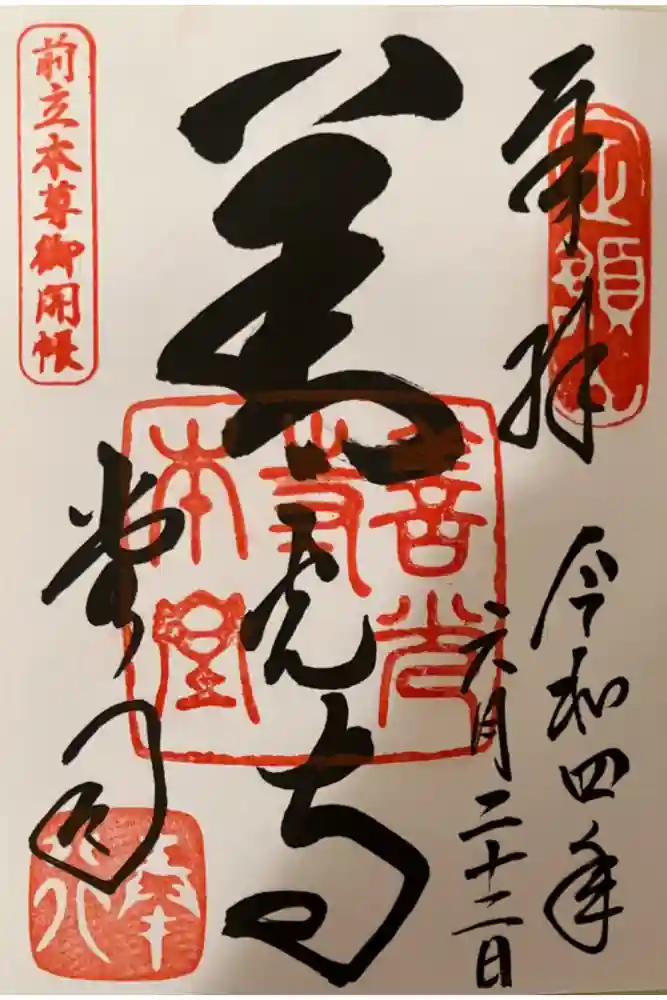 定額山
奉拝
令和四年
六月二十二日
善光寺
善光寺本堂
堂司
奉行
前立本尊御開帳